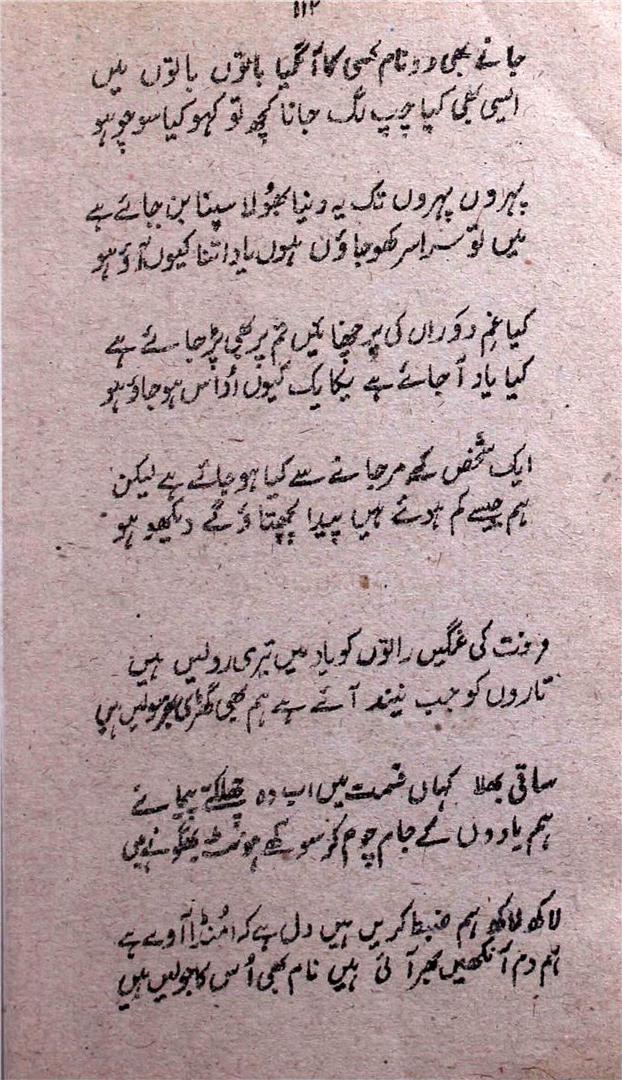 ۱۱۲
جانے بھی دو نام کسی کا آ گیا باتوں باتوں میں
ایسی بھی کیا چپ لگ جانا کچھ تو کہو کیا سوچو ہو
پہروں پہروں تک یہ دنیا بھولا سپنا بن جائے ہے
میں تو سراسر کھو جاؤں ہوں یاد اتنا کیوں آؤ ہو
کیا غمِ دوراں کی پرچھائیں تم پر بھی پڑ جائے ہے
کیا یاد آ جائے ہے یکایک کیوں اُداس ہو جاؤ ہو
ایک شخص کے مر جانے سے کیا ہو جائے ہے لیکن
ہم جیسے کم ہوئے ہیں پیدا پچھتاؤ گے دیکھو ہو
فرقت کی غمگیں راتوں کو یاد میں تیری رولیں ہیں
تاروں کو جب نیند آئے ہے ہم بھی گھڑی بھر سولیں ہیں
ساقی بھلا کہاں قسمت میں اب وہ چھلکتے پیمانے
ہم یادوں کے جام چوم کر سوکھے ہونٹ بھگولیں ہیں
لاکھ لاکھ ہم ضبط کریں ہیں دل ہے کہ اُمنڈا آوے ہے
ہم دم آنکھیں بھر آئی ہیں نام بھی اُس کا جو لیں ہیں